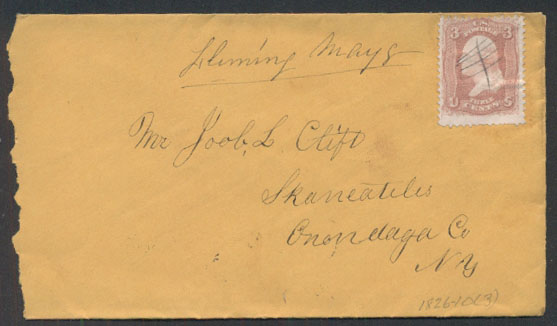 Fleming May 8
3 U.S. 3
POSTAGE
THREE
U CENTS S
Mr Joob. L. Clift
Skaneatiles
Onondaga Co
N.Y
1826-10(3)